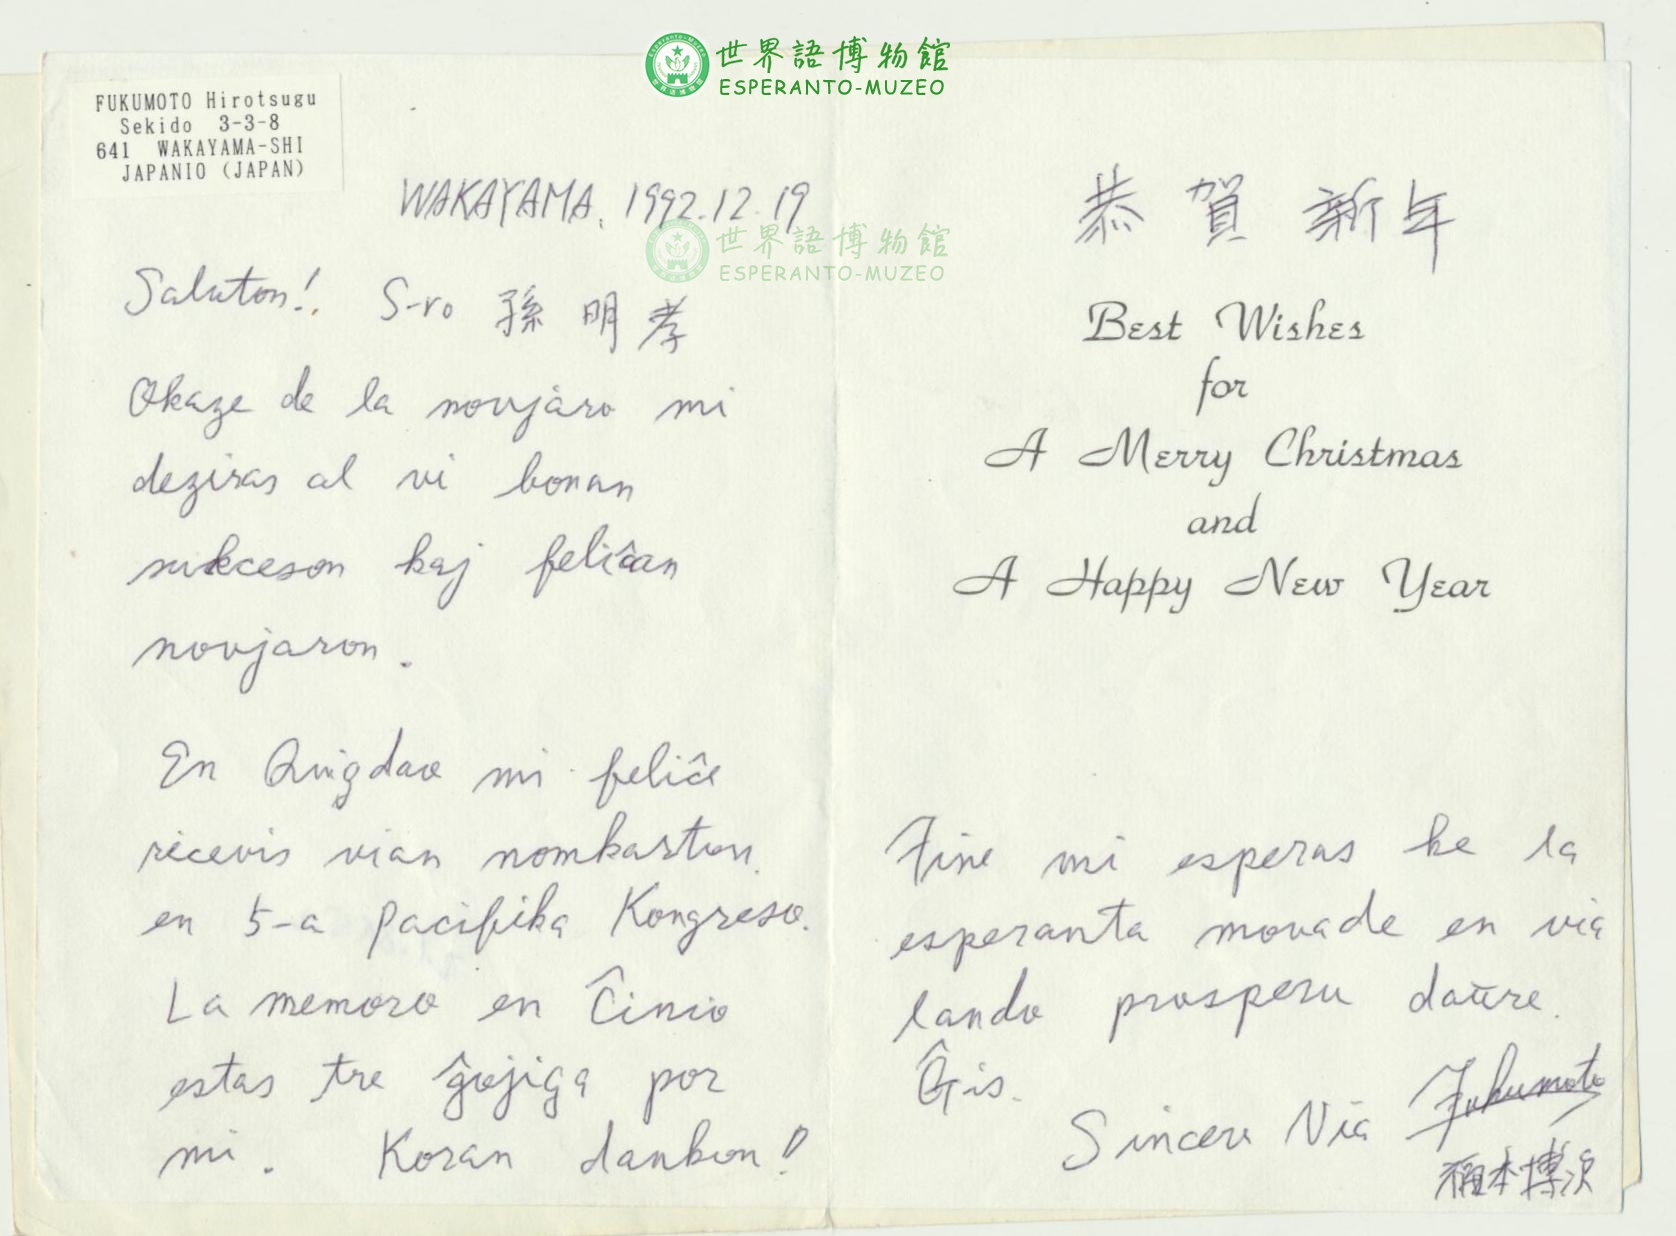 世界語博物館
ESPERANTO-MUZEO
FUKUMOTO Hirotsugu
Sekido 3-3-8
641 WAKAYAMA-SHI
JAPANIO (JAPAN)
WAKAYAMA, 1992.12.19
世界語博物館
ESPERANTO-MUZEO
Saluton! S-ro 孫明孝
Okaze de la novjaro mi
deziras al vi bonan
sukceson kaj feliĉan
novjaron.
En Qingdao mi feliĉe
ricevis vian nomkarton
en 5-a Pacifika Kongreso.
La memoro en Ĉinio
estas tre ĝojiga por
mi. Koran dankon!
恭賀新年
Best Wishes
for
A Merry Christmas
and
A Happy New Year
Fine mi esperas ke la
esperanta movade en via
lando prosperu daŭre.
Ĝis.
Sincere Via Fukumoto
福本博次